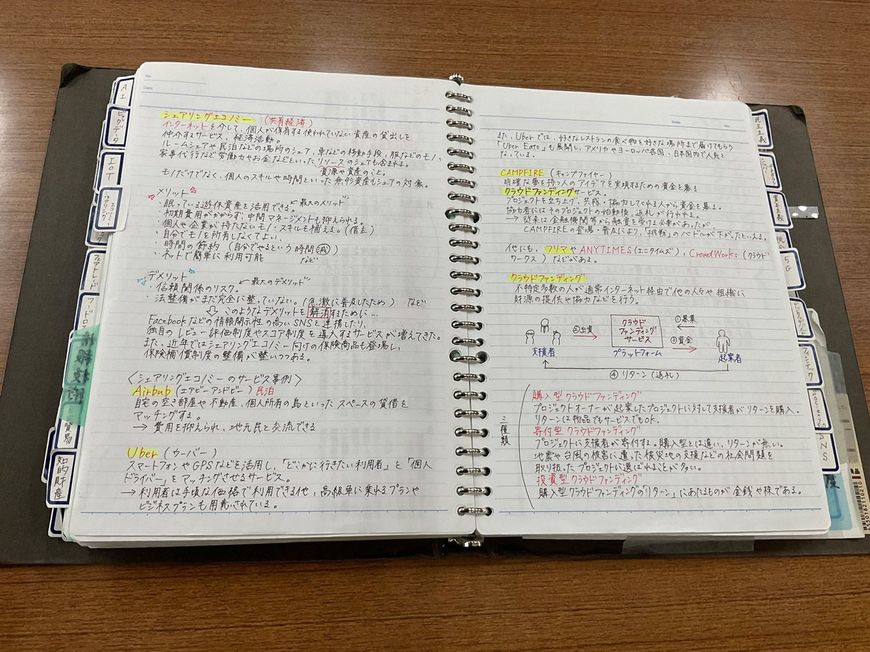 No.
Date
シェアリングエコノミー (共有経済)
インターネットを介して、個人が保有する使われていない資産の貸出しを
仲介するサービス、経済活動。
ルームシェアや民泊などの場所のシェア、車などの移動手段、服などのモノ、
家事代行など労働力やお金などといったリソースのシェアも含まれる。
資源や資産のこと。
モノだけでなく、個人のスキルや時間といった無形資産もシェアの対象。
メリット
・眠っている遊休資産を活用できる ←最大のメリット
・初期費用がかからず、中間マネージメントも抑えられる。
・個人や企業が持たないモノ・スキルも補える。(借主)
・自分でモノを所有しなくてよい
・時間の節約 (自分でやるという時間㊀)
・ネットで簡単に利用可能 など
デメリット
・信頼関係のリスク。 ←最大のデメリット
・法整備がまだ完全に整っていない。(急激に普及したため) など
⇩ このようなデメリットを解消するために…
Facebookなどの情報開示性の高いSNSと連携したり、
独自のレビュー評価制度やスコア制度を導入するサービスが増えてきた。
また、近年ではシェアリングエコノミー向けの保険商品も登場し、
保険補償制度の整備が整いつつある。
〈シェアリングエコノミーのサービス事例〉
Airbnb (エアビーアンドビー) 民泊
自宅の空き部屋や不動産、個人所有の島といったスペースの貸借を
マッチングする。
→ 費用を抑えられ、地元民と交流できる
Uber (ウーバー)
スマートフォンやGPSなどを活用し、「どこかに行きたい利用者」と「個人
ドライバー」をマッチングさせるサービス。
→ 利用者は手頃な価格で利用できる他、高級車に乗れるプランや
ビジネスプランも用意されている。
また、Uberでは、好きなレストランの食べ物を好きな場所まで届けてもらう
「Uber Eats」も展開し、アメリカやヨーロッパ各国、日本国内で人気と
なっている。
CAMPFIRE (キャンプファイヤー)
明確な夢を持つ人のアイデアを実現するための資金を募る
クラウドファンディングサービス。
プロジェクトを立ち上げ、共感・協力してくれる人から資金を募る。
協力者にはそのプロジェクトの始動後、返礼が行われる。
→ 従来は金融機関等から融資を受ける必要があったが、
CAMPFIREの登場・普及により、「挑戦」のハードルが下がったといえる。
他にも、フリマやANYTIMES (エニタイムズ)、CrowdWorks (クラウド
ワークス) などがある。
クラウドファンディング
不特定多数の人が通常インターネット経由で他の人々や組織に
財源の提供や協力などを行う。
②出資
クラウド
ファンディング
サービス
①募集
③資金
支援者
プラットフォーム
起業者
④リターン (返礼)
三種類
購入型クラウドファンディング
プロジェクトオーナーが起案したプロジェクトに対して支援者がリターンを購入。
リターンは物品でもサービスでもOK。
寄付型クラウドファンディング
プロジェクトに支援者が寄付する。購入型とは違い、リターンが無い。
地震や台風の被害に遭った被災地の支援などの社会問題を
取り扱ったプロジェクトに選ばれることが多い。
投資型クラウドファンディング
購入型クラウドファンディングの「リターン」にあたるものが金銭や株である。
AI
ビッグデータ
IOT
情報技術
貿易
知的財産
民主主義
資本主義
5G
SNS